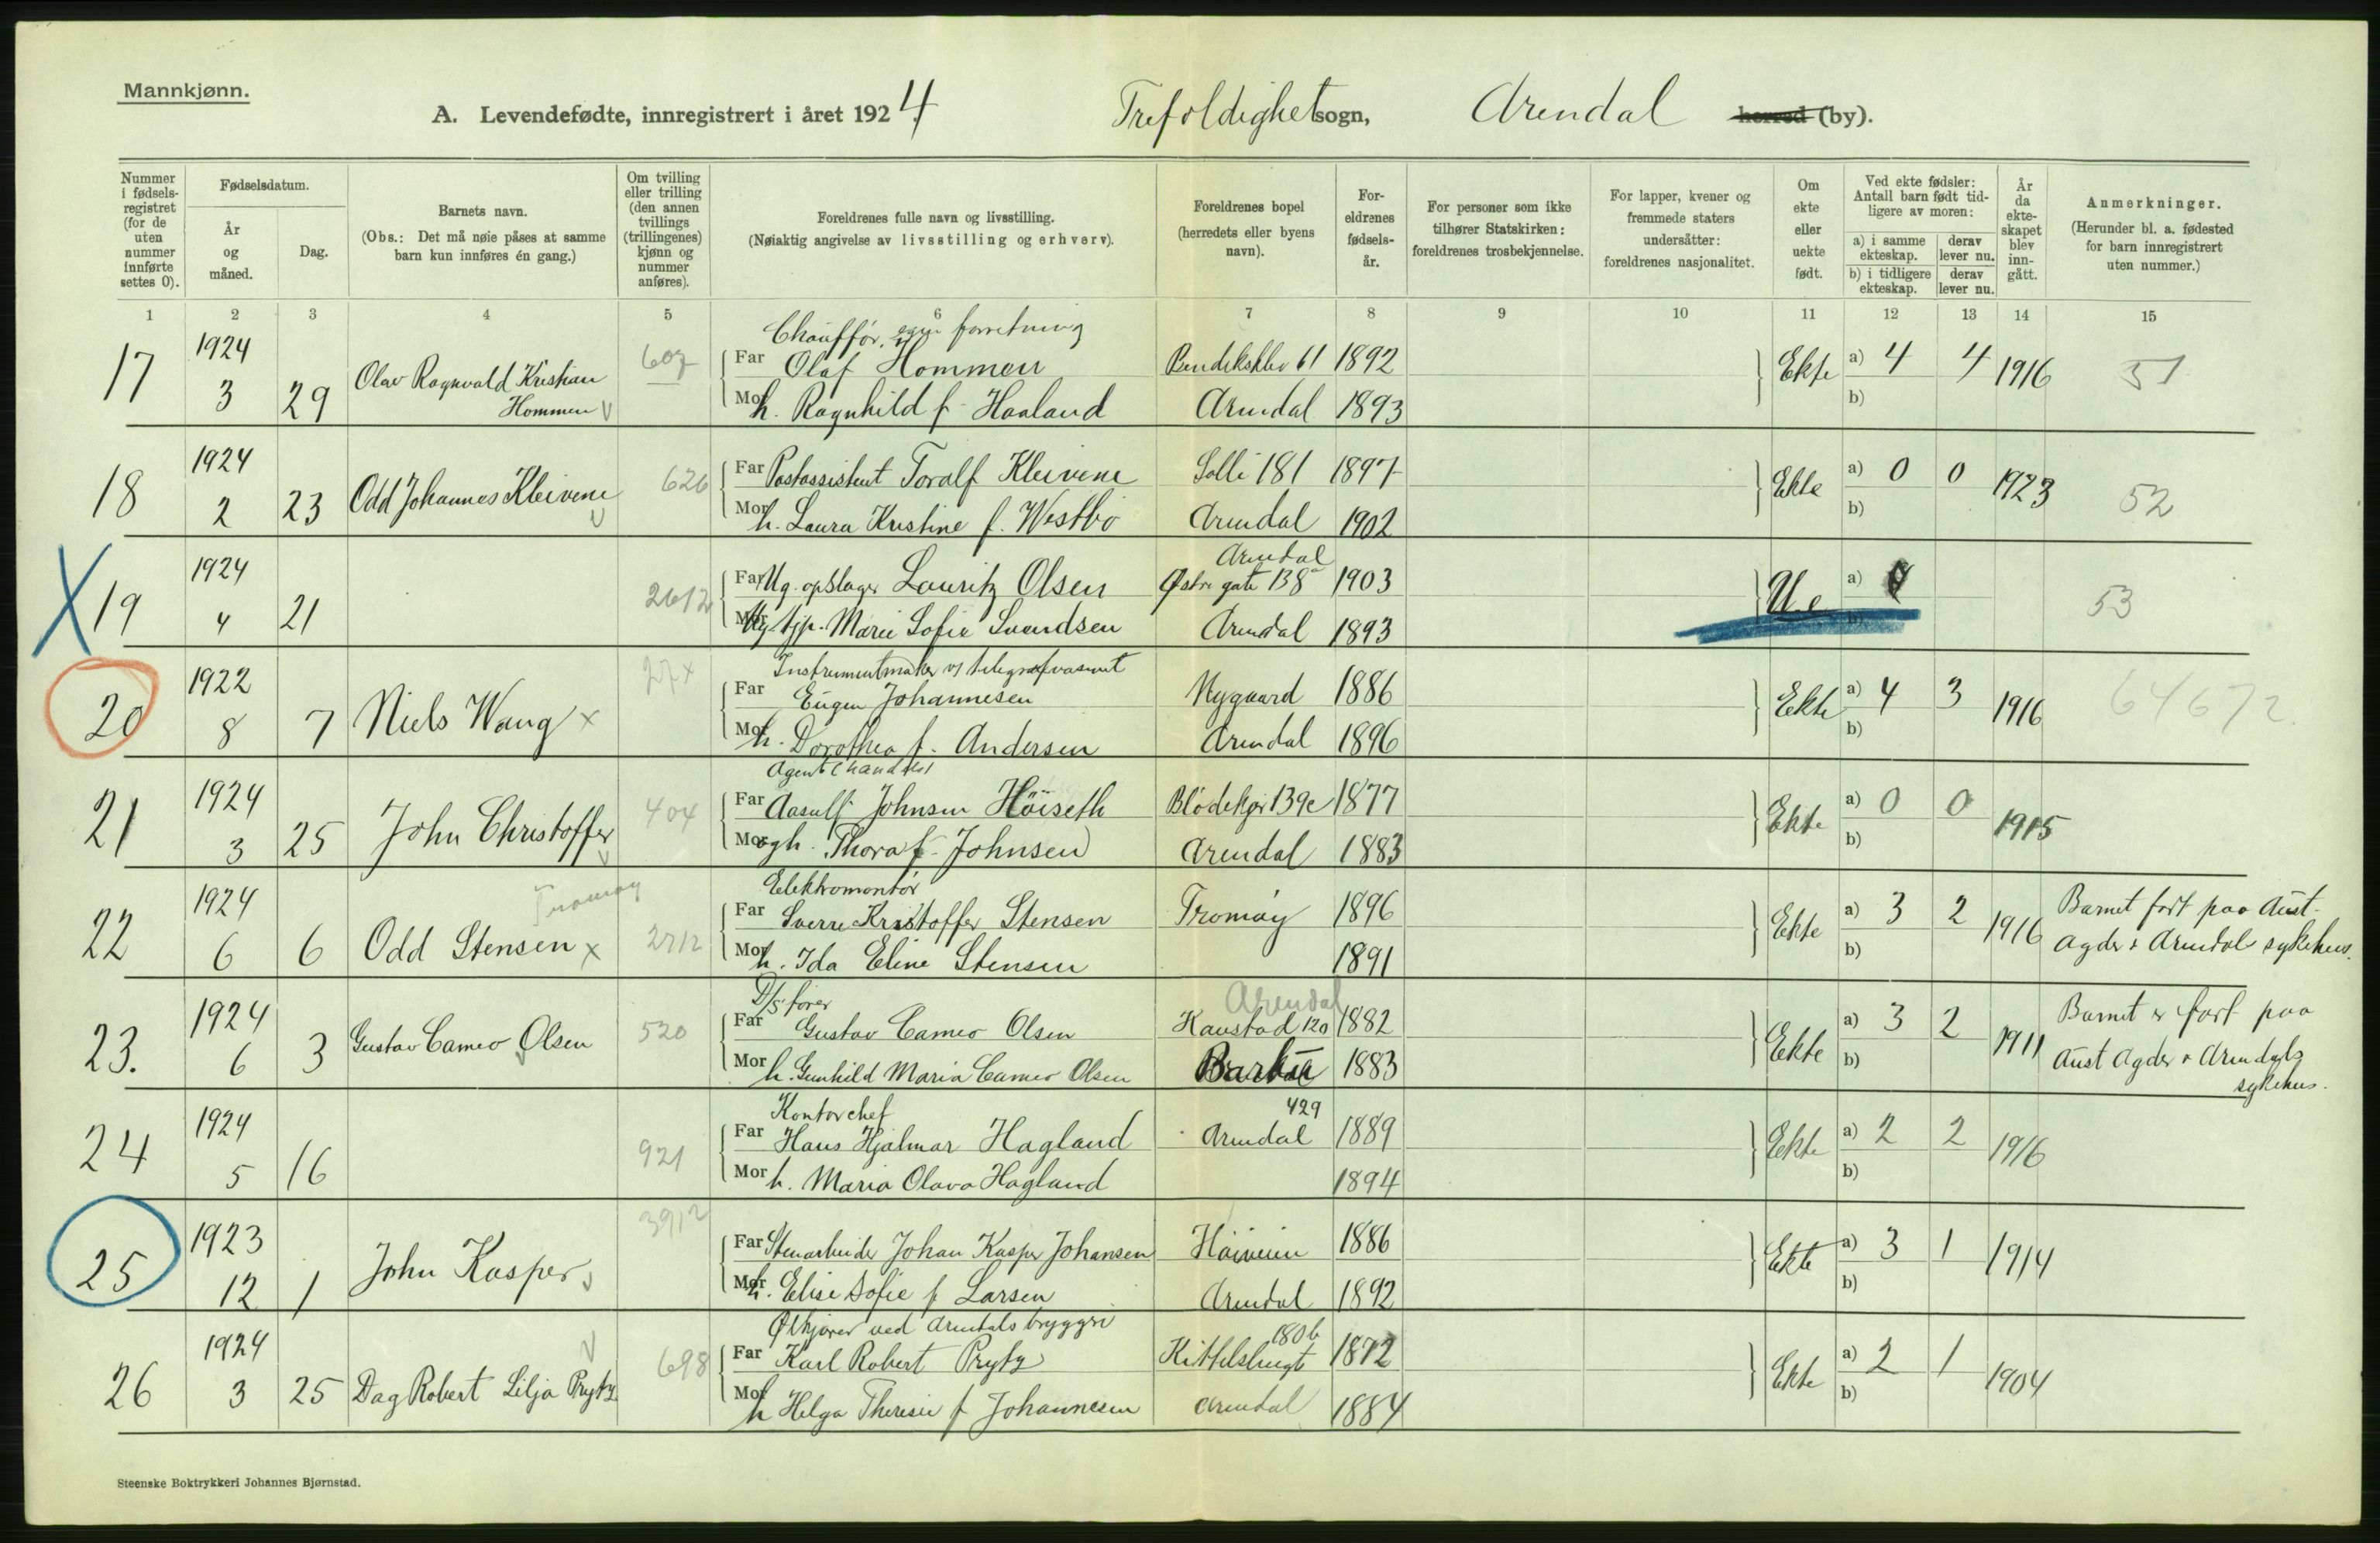 Mannkjønn.
A. Levendefødte, innregistrert i året 1924. Trefoldighet sogn, Arendal herred (by).
Nummer i fødsels-registret (for de uten nummer innførte settes 0).
Fødselsdatum.
År og måned.
Dag.
Barnets navn.
(Obs.: Det må nøie påses at samme barn kun innføres én gang.)
Om tvilling eller trilling (den annen tvillings (trillingenes) kjønn og nummer anføres).
Foreldrenes fulle navn og livsstilling.
(Nøiaktig angivelse av livsstilling og erhverv).
Foreldrenes bopel (herredets eller byens navn).
For-eldrenes fødsels-år.
For personer som ikke tilhører Statskirken: foreldrenes trosbekjennelse.
For lapper, kvener og fremmede staters undersåtter: foreldrenes nasjonalitet.
Om ekte eller uekte født.
Ved ekte fødsler: Antall barn født tid-ligere av moren:
a) i samme ekteskap.
derav lever nu.
b) i tidligere ekteskap.
derav lever nu.
År da ekte-skapet blev inn-gått.
Anmerkninger.
(Herunder bl. a. fødested for barn innregistrert uten nummer.)
1 2 3 4 5 6 7 8 9 10 11 12 13 14 15
Chauffør, egen forretning
17 1924 607 Far Olaf Hommen Bendiksklev 61 1892 Ekte a) 4 4 1916 51
3 29 Olav Ragnvald Kristian Hommen Mor h. Ragnhild f. Haaland Arendal 1893 b)
18 1924 626 Far Postassistent Toralf Kleivene Solli 181 1897 Ekte a) 0 0 1923 52
2 23 Odd Johannes Kleivene Mor h. Laura Kristine f. Westbø Arendal 1902 b)
Arendal
X 19 1924 2612 Far Ug. opslager Lauritz Olsen Østre gate 138 1903 U.e a) 53
4 21 Mor Ug. tjp. Marie Sofie Svendsen Arendal 1893 b)
Instrumentmaker v/ telegrafvæsenet
20 1922 Far Eugen Johannesen Nygaard 1886 Ekte a) 4 3 1916 64672
8 7 Niels Wang x Mor h. Dorothea f. Andersen Arendal 1896 b)
Agent (handels)
21 1924 404 Far Aasulf Johnsen Höiseth Blödekjær 139e 1877 Ekte a) 0 0 1915
3 25 John Christoffer Mor ogh. Thora f. Johnsen Arendal 1883 b)
Tromøy
Elektromontør
22 1924 2712 Far Sverre Kristoffer Stensen Tromøy 1896 Ekte a) 3 2 1916 Barnet født paa Aust-
6 6 Odd Stensen x Mor h. Ida Eline Stensen 1891 b) Agder & Arendals sykehus.
D/S fører Arendal
23. 1924 520 Far Gustav Cameo Olsen Kaustad 120 1882 Ekte a) 3 2 1911 Barnet er født paa
6 3 Gustav Cameo Olsen Mor h. Gunhild Maria Cameo Olsen Barbu 1883 b) Aust Agder & Arendals
sykehus.
Kontorchef 429
24 1924 921 Far Hans Hjalmar Hagland Arendal 1889 Ekte a) 2 2 1916
5 16 Mor h. Maria Olava Hagland 1894 b)
25 1923 3912 Far Stenarbeider Johan Kasper Johansen 1886 Ekte a) 3 1 1914
12 1 John Kasper Mor h. Elise Sofie f Larsen Arendal 1892 b)
Ølkjører ved Arendals bryggeri 180b
26 1924 698 Far Karl Robert Prytz Kittelsbugt 1872 Ekte a) 2 1 1904
3 25 Dag Robert Lilja Prytz Mor h Helga Theresie f Johannesen Arendal 1884 b)
Steenske Boktrykkeri Johannes Bjørnstad.